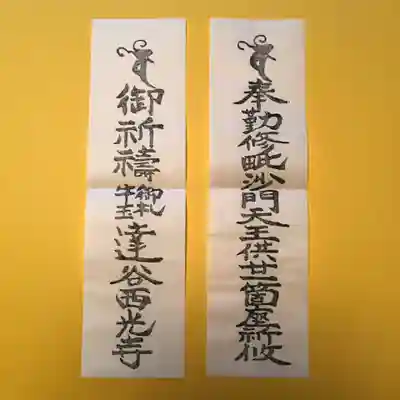 奉勤修毗沙門天王供廿一箇座祈攸
御祈禱
御札
牛玉
達谷西光寺